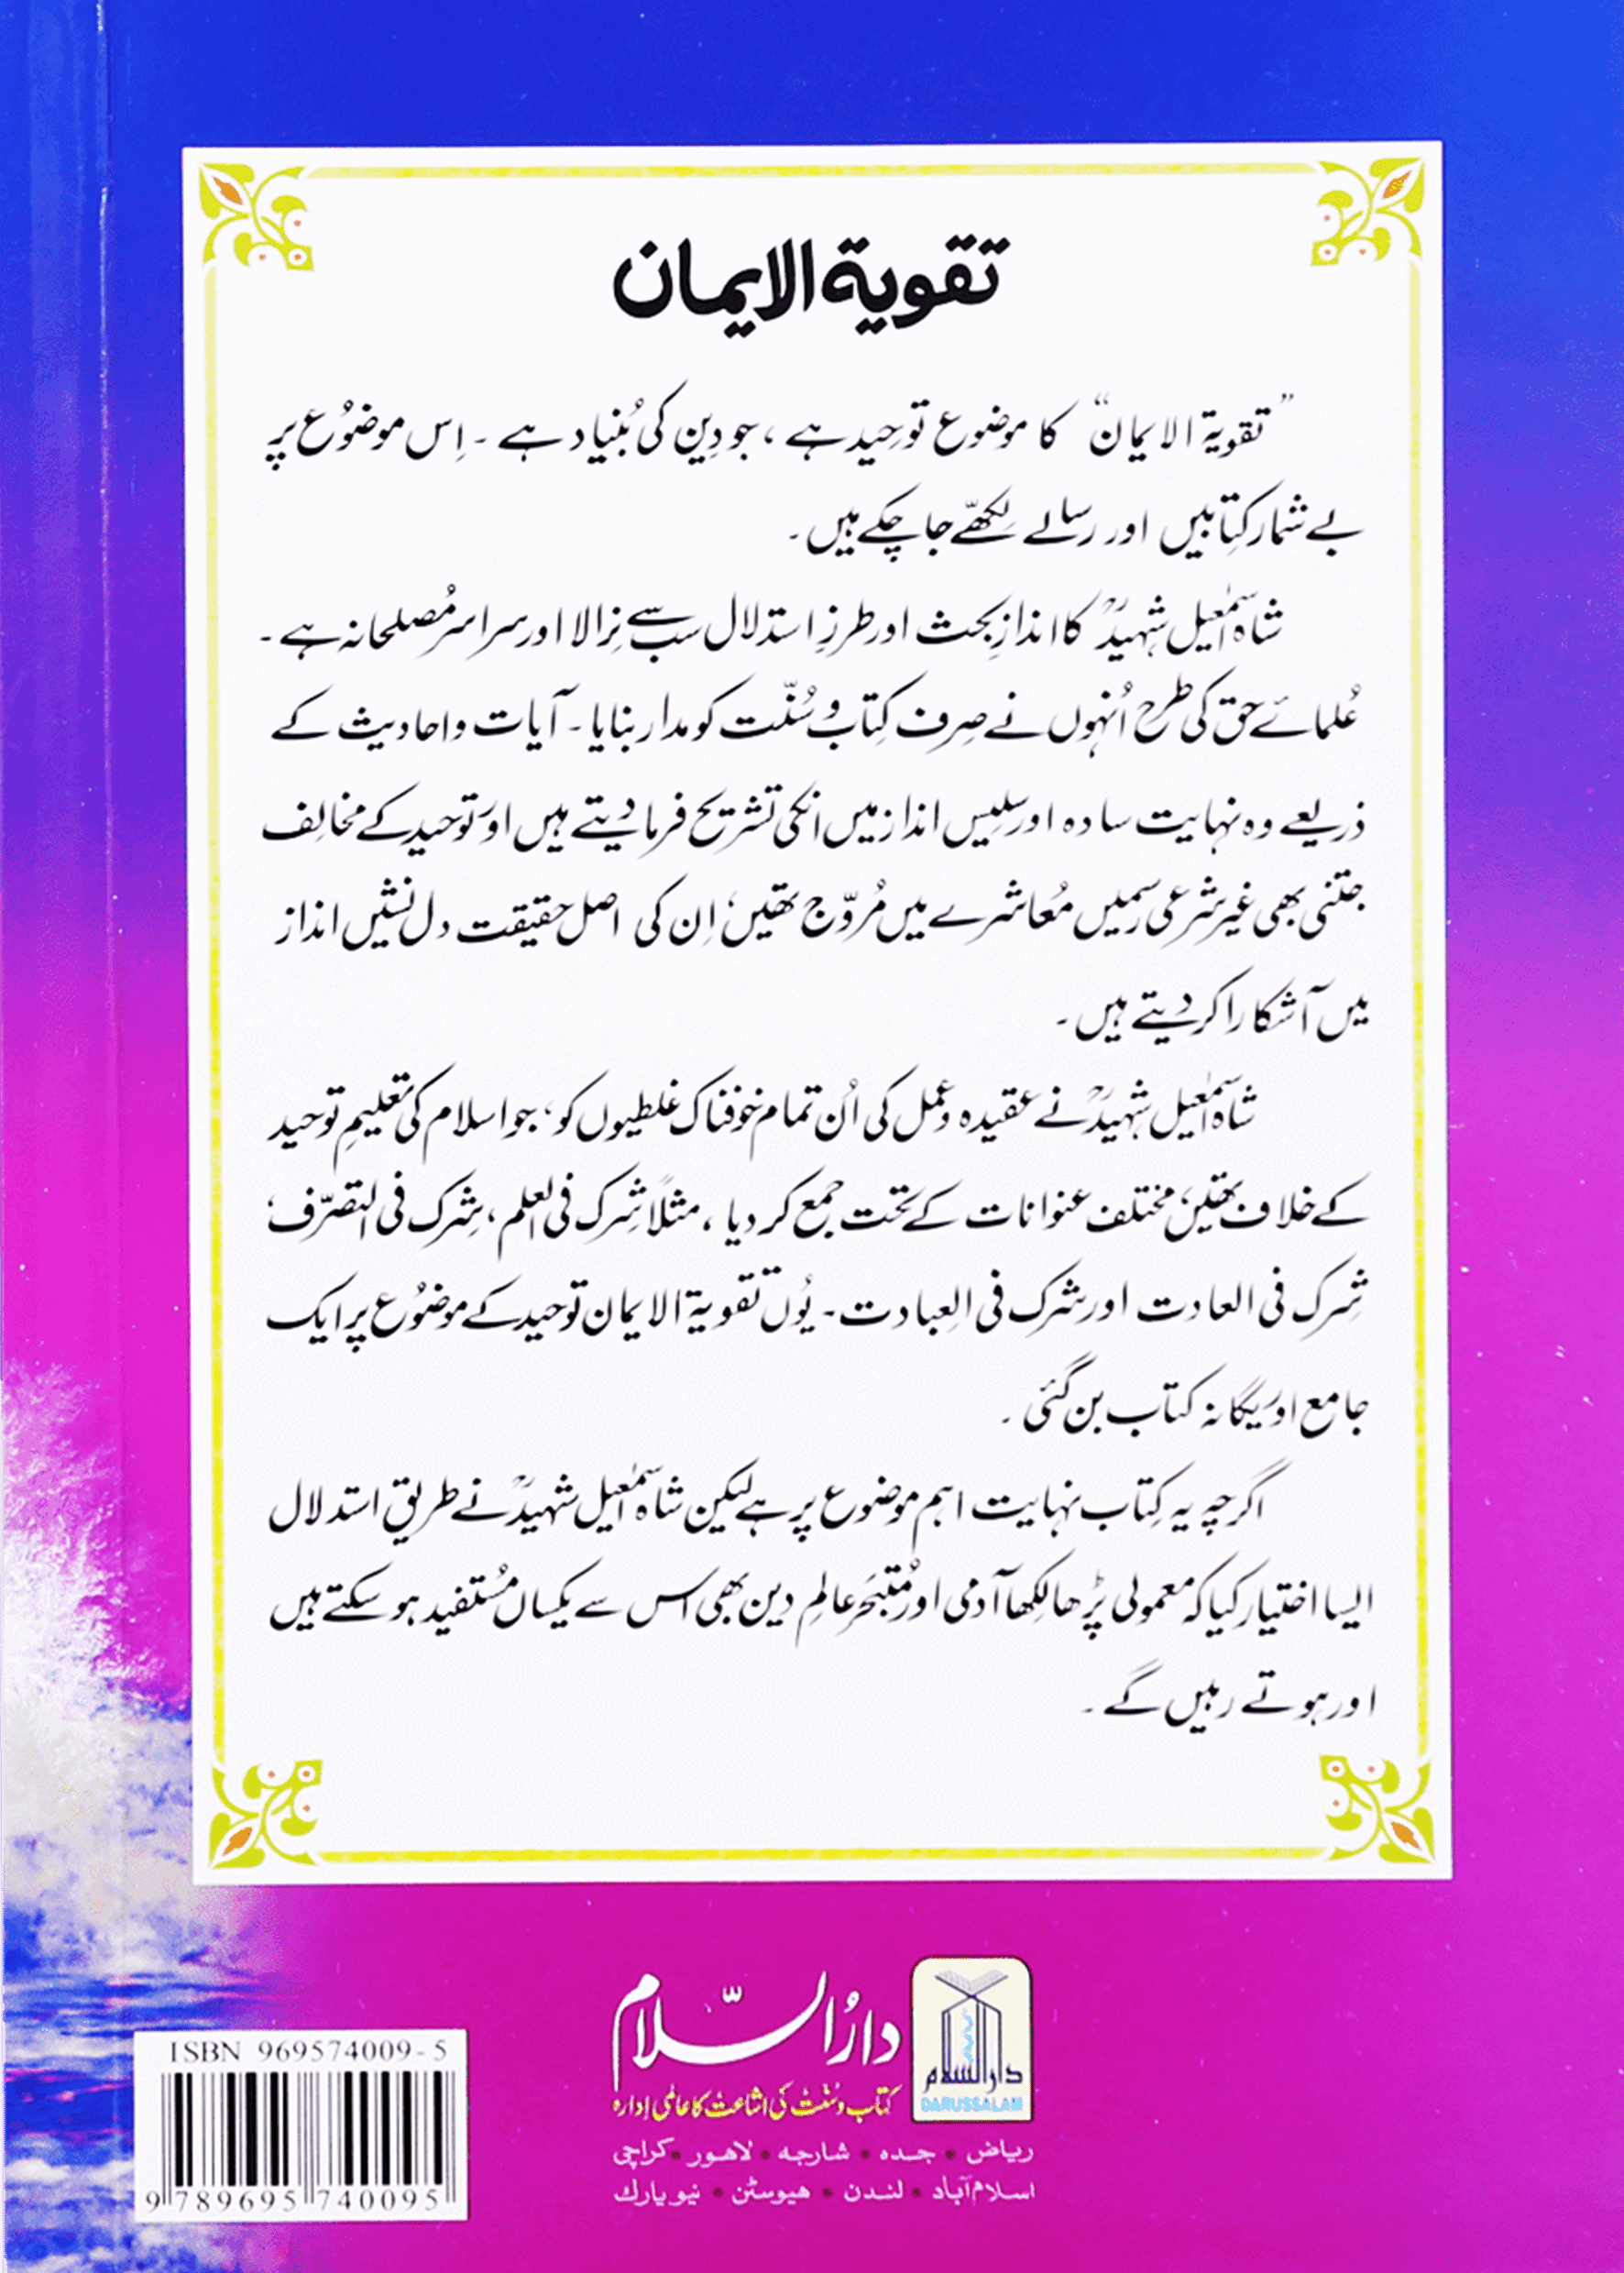 تقویة الایمان
”تقویة الایمان“ کا موضوع توحِید ہے ، جو دِین کی بُنیاد ہے ۔ اِس موضوُع پر
بے شمار کِتابیں اور رسالے لِکھّے جا چکے ہیں ۔
شاہ اسمٰعیل شہیدؒ کا اندازِ بحث اور طرزِ استدلال سب سے نِرالا اور سراسر مُصلحانہ ہے ۔
عُلمائے حق کی طرح اُنہوں نے صِرف کِتاب و سُنّت کو مدار بنایا ۔ آیات و احادیث کے
ذریعے وہ نہایت سادہ اور سلِیس انداز میں انکی تشریح فرما دیتے ہیں اور توحید کے مخالِف
جتنی بھی غیر شرعی رسمیں مُعاشرے میں مُروّج تھیں، اِن کی اصل حقیقت دل نشیں انداز
میں آشکارا کر دیتے ہیں ۔
شاہ اسمٰعیل شہیدؒ نے عقیدہ و عمل کی اُن تمام خوفناک غلطیوں کو، جو اسلام کی تعلیمِ توحید
کے خلاف تھیں، مختلف عنوانات کے تحت جمع کر دیا ، مثلاً شِرک فی العلم، شِرک فی التصرّف،
شِرک فی العادت اور شرک فی العِبادت ۔ یُوں تقویة الایمان توحید کے موضوُع پر ایک
جامع اور یگانہ کتاب بن گئی ۔
اگرچہ یہ کِتاب نہایت اہم موضوع پر ہے لیکن شاہ اسمٰعیل شہیدؒ نے طریقِ استدلال
ایسا اختیار کیا کہ معمولی پڑھا لِکھا آدمی اور مُتبحّر عالِمِ دین بھی اس سے یکساں مُستفید ہو سکتے ہیں
اور ہوتے رہیں گے ۔
دارُالسّلام
کتاب و سُنّت کی اشاعت کا عالمی اِدارہ
دارالسلام
DARUSSALAM
ریاض • جدہ • شارجہ • لاہور • کراچی
اسلام آباد • لندن • ہیوسٹن • نیویارک
ISBN 969574009-5
9 789695 740095